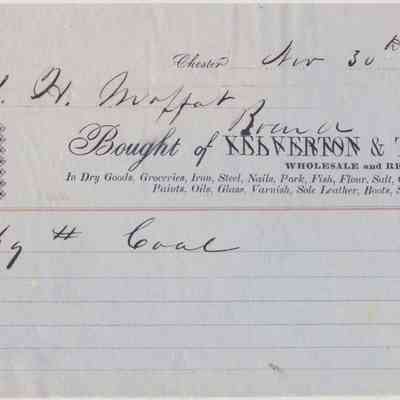 Chester Nov 30th
H. Moffat
Brand
Bought of YELVERTON & T
WHOLESALE and RE
In Dry Goods, Groceries, Iron, Steel, Nails, Pork, Fish, Flour, Salt, C
Paints, Oils, Glass, Varnish, Sole Leather, Boots, S
# Coal